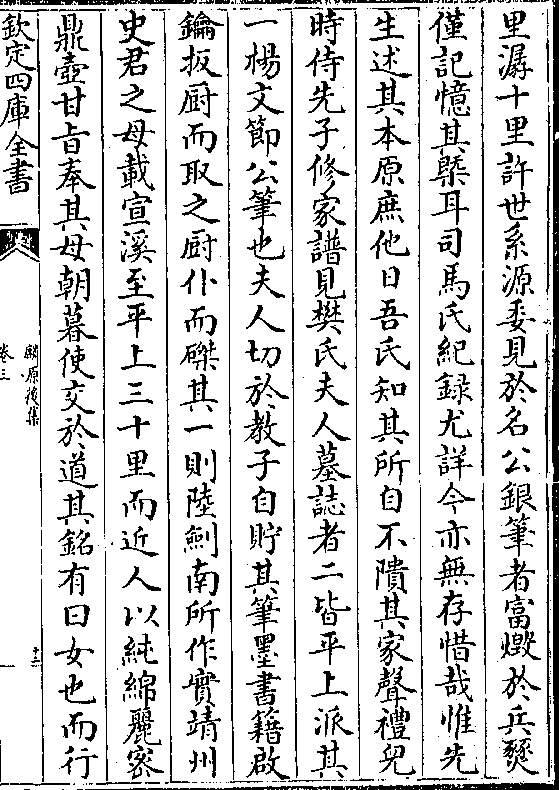 里潺十里許世系源委見於名公銀筆者富燬於兵燹
僅記憶其槩耳司馬氏紀録尤詳今亦無存惜哉惟先
生述其本原庶他日吾氏知其所自不隤其家聲禮兒
時侍先子修家譜見樊氏夫人墓誌者二皆平上派其
一楊文節公筆也夫人切於教子自貯其筆墨書籍啟
鑰扳厨而取之厨仆而磔其一則陸劍南所作實靖州
史君之母載宣溪至平上三十里而近人以純綿麗密
鼎壺甘㫖奉其母朝暮使交於道其銘有曰女也而行
欽定四庫全書
麟原後集
卷三